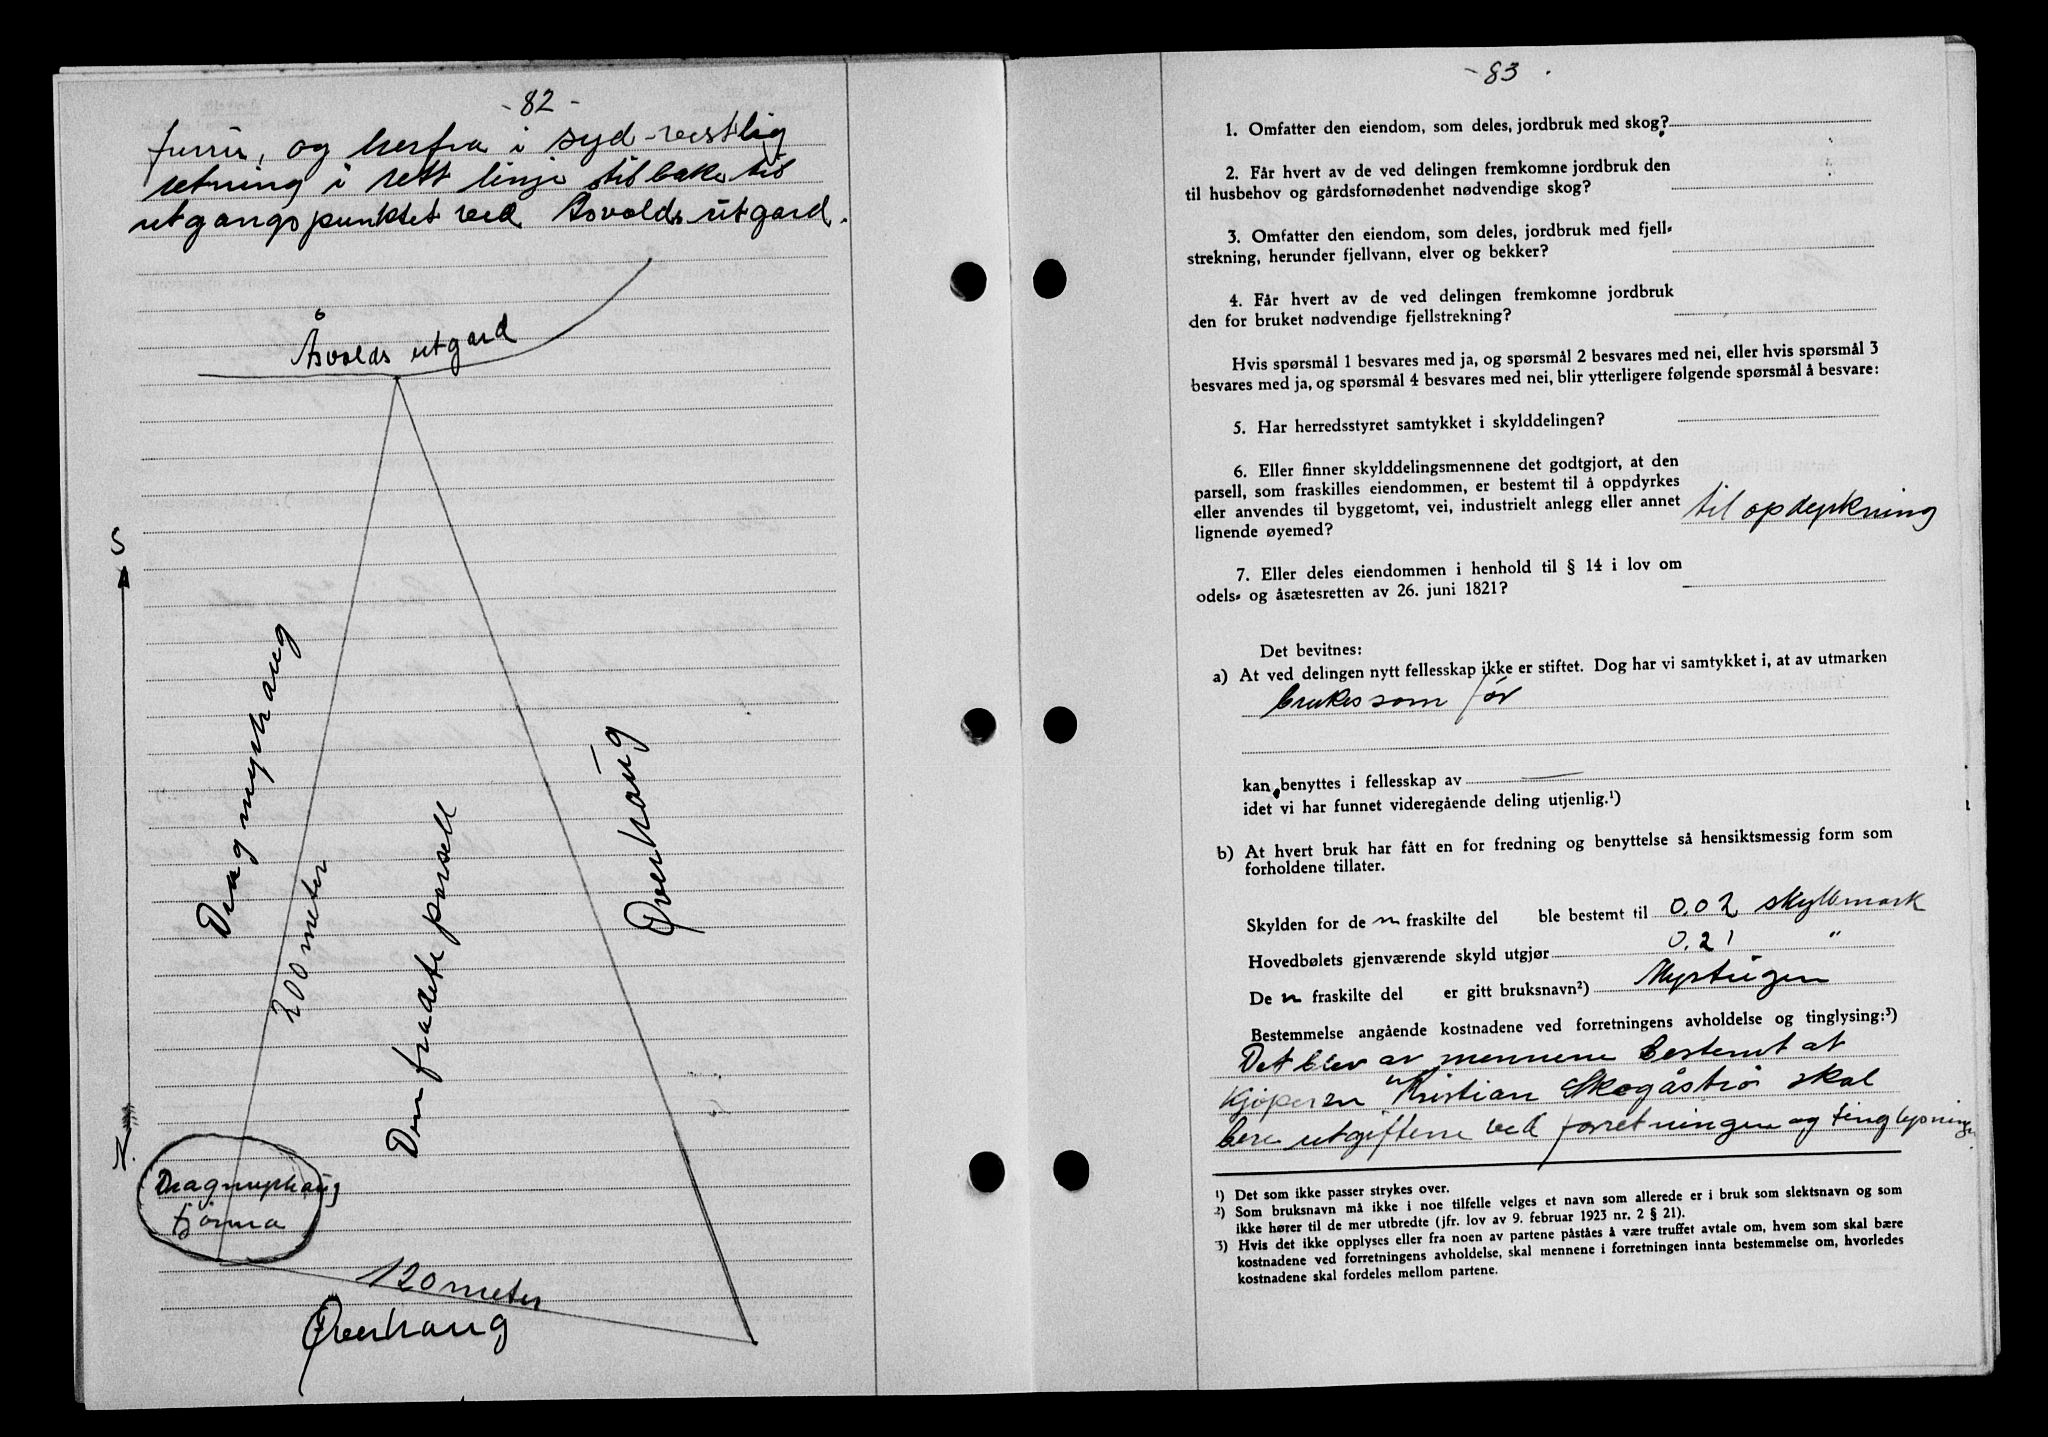 - 82 -
furu, og herfra i syd-vestlig
retning i rett linje tilbake til
utgangspunktet ved Åsvolds utgard.
Åsvolds utgard
S
Dragmyrhaug
200 meter
Den fradelte parsell
Øverhaug
N.
Dragmyrhaug
tjørna
120 meter
Øverhaug
- 83 .
1. Omfatter den eiendom, som deles, jordbruk med skog?
2. Får hvert av de ved delingen fremkomne jordbruk den
til husbehov og gårdsfornødenhet nødvendige skog?
3. Omfatter den eiendom, som deles, jordbruk med fjell-
strekning, herunder fjellvann, elver og bekker?
4. Får hvert av de ved delingen fremkomne jordbruk
den for bruket nødvendige fjellstrekning?
Hvis spørsmål 1 besvares med ja, og spørsmål 2 besvares med nei, eller hvis spørsmål 3
besvares med ja, og spørsmål 4 besvares med nei, blir ytterligere følgende spørsmål å besvare:
5. Har herredsstyret samtykket i skylddelingen?
6. Eller finner skylddelingsmennene det godtgjort, at den
parsell, som fraskilles eiendommen, er bestemt til å oppdyrkes
eller anvendes til byggetomt, vei, industrielt anlegg eller annet
lignende øyemed? til opdyrkning
7. Eller deles eiendommen i henhold til § 14 i lov om
odels- og åsætesretten av 26. juni 1821?
Det bevitnes:
a) At ved delingen nytt fellesskap ikke er stiftet. Dog har vi samtykket i, at av utmarken
brukes som før
kan benyttes i fellesskap av —
idet vi har funnet videregående deling utjenlig.¹)
b) At hvert bruk har fått en for fredning og benyttelse så hensiktsmessig form som
forholdene tillater.
Skylden for de n fraskilte del ble bestemt til 0.02 skyldmark
Hovedbølets gjenværende skyld utgjør 0.21 "
De n fraskilte del er gitt bruksnavn²) Myrstugen
Bestemmelse angående kostnadene ved forretningens avholdelse og tinglysing:³)
Det blev av mennene bestemt at
kjøperen Kristian Skogåstrø skal
bere utgiftene ved forretningen og tinglysningen
¹) Det som ikke passer strykes over.
²) Som bruksnavn må ikke i noe tilfelle velges et navn som allerede er i bruk som slektsnavn og som
ikke hører til de mer utbredte (jfr. lov av 9. februar 1923 nr. 2 § 21).
³) Hvis det ikke opplyses eller fra noen av partene påståes å være truffet avtale om, hvem som skal bære
kostnadene ved forretningens avholdelse, skal mennene i forretningen innta bestemmelse om, hvorledes
kostnadene skal fordeles mellom partene.